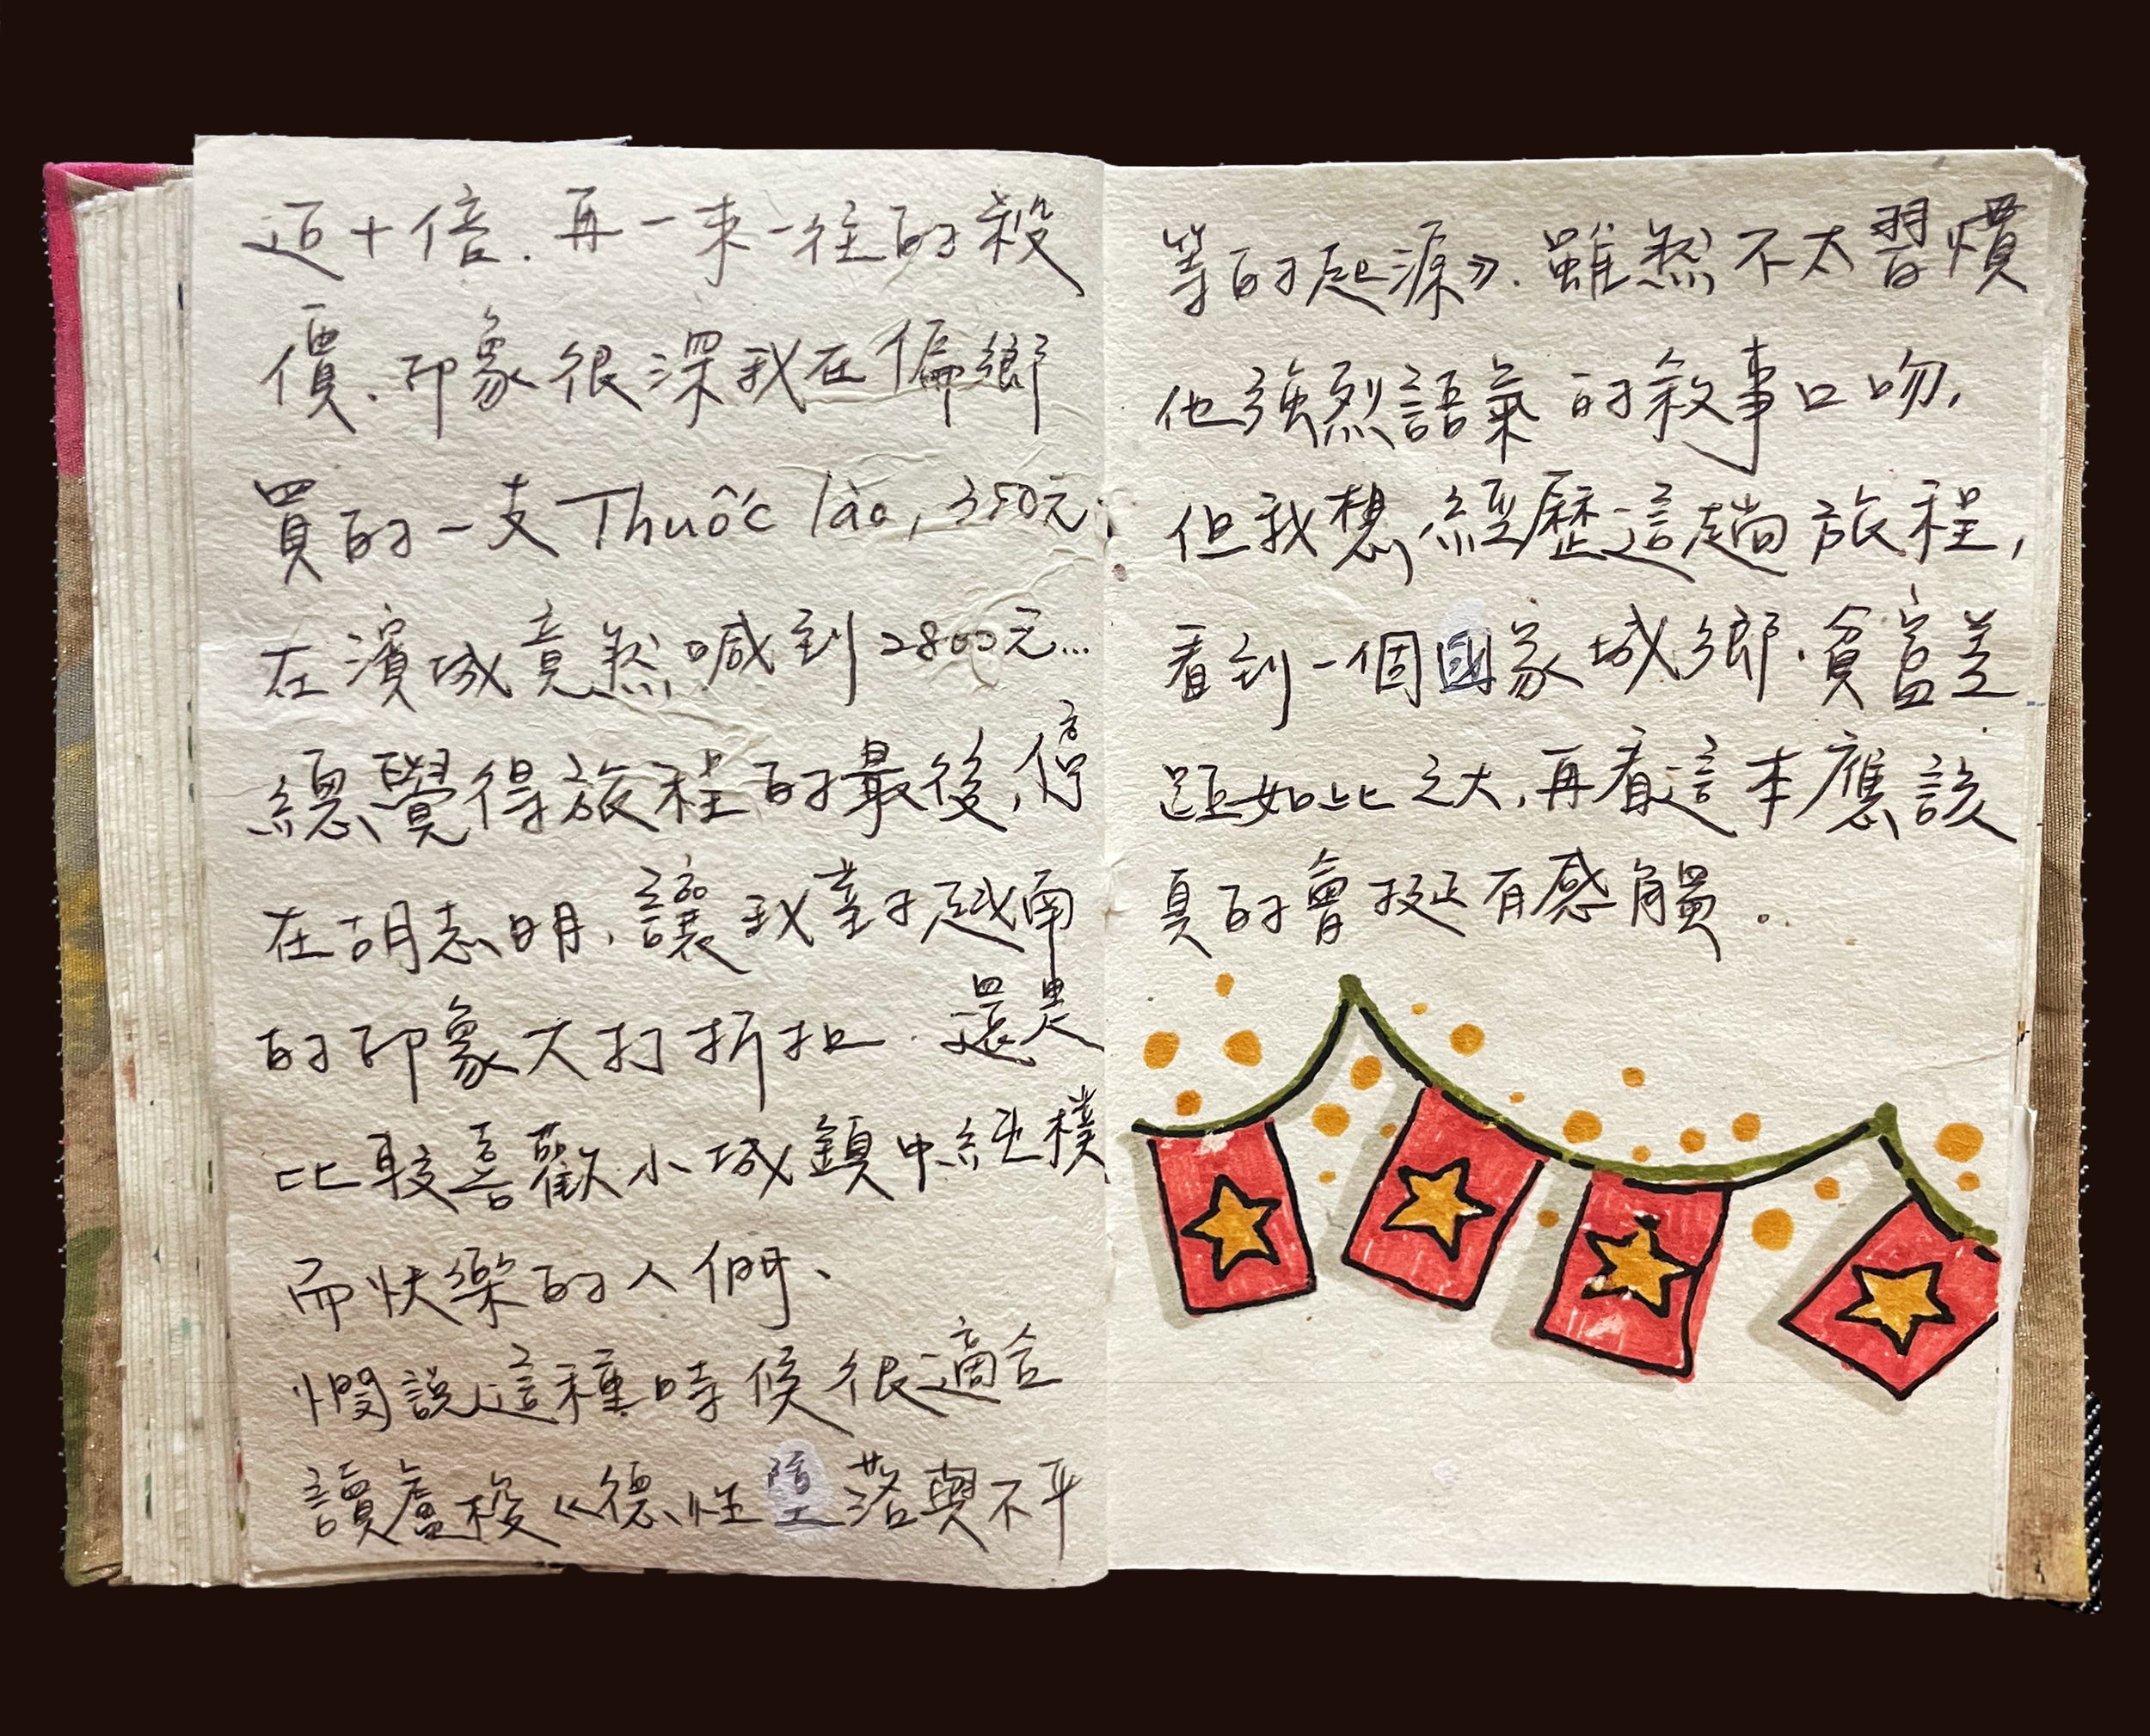 近十倍.再一來一往的殺
價.印象很深我在偏鄉
買的一支Thuốc lào,350元,
在濱城竟然喊到2800元...
總覺得旅程的最後,停
在胡志明,讓我對于越南
的印象大打折扣.還是
比較喜歡小城鎮中純樸
而快樂的人們、
憫說這種時候很適合
讀盧梭《德性墮落與不平
等的起源》.雖然不太習慣
他強烈語氣的敘事口吻,
但我想,經歷這趟旅程,
看到一個國家城鄉.貧富差
距如此之大,再看這本應該
真的會挺有感觸。